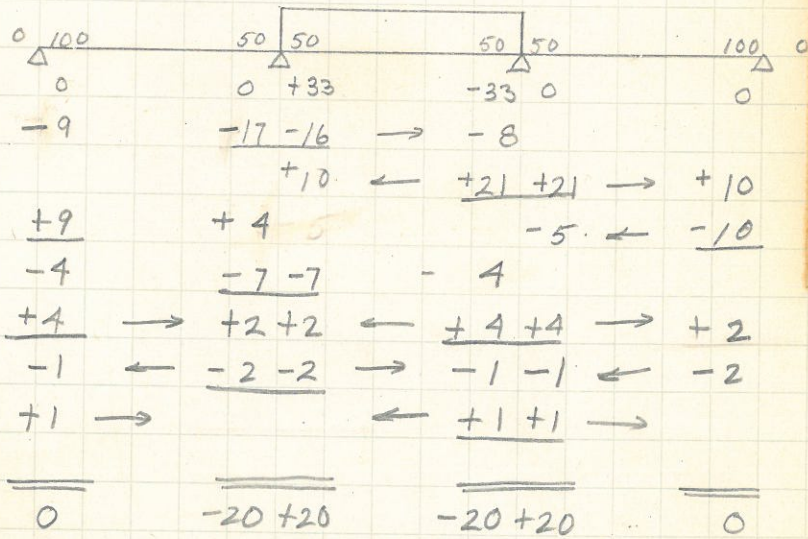 0 100 50 50 50 50 100 0
0 0 +33 -33 0 0
-9 -17 -16 → -8
+10 ← +21 +21 → +10
+9 +4 -5 ← -10
-4 -7 -7 - 4
+4 → +2 +2 ← +4 +4 → +2
-1 ← -2 -2 → -1 -1 ← -2
+1 → ← +1 +1 →
0 -20 +20 -20 +20 0